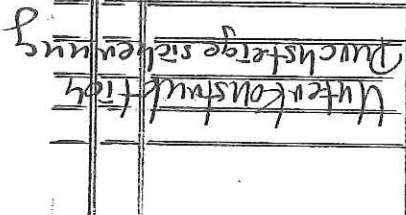 Unterkonstruktion
Durchsteigesicherung